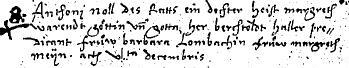 Anthoni noll des Ratts ein dochter heist margreth
warendt göttin vn̄ gotta, her berchtoldt haller pre-
dicant frůw barbara Lombachin frůw margreth
meÿn. actū decembris